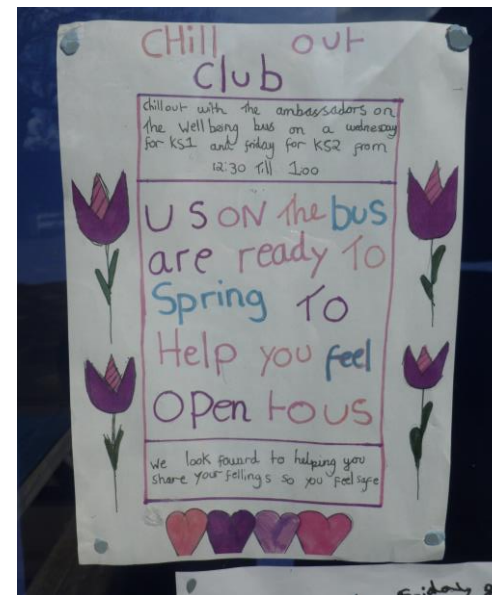 CHill out
Club
chillout with the ambassadors on
the Wellbeing bus on a wednesday
for KS1 and friday for KS2 from
12:30 Till 1:00
US ON the bus
are ready To
Spring To
Help you feel
OPen to us
we look foward to helping you
share your fellings so you feel safe
Friday